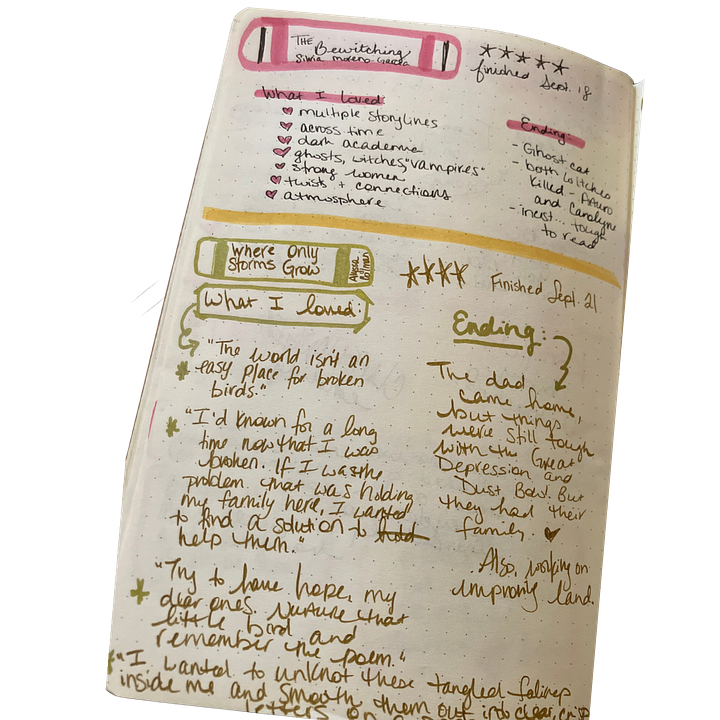 THE
Bewitching
Silvia Moreno-Garcia
★★★★★
finished Sept. 18
What I loved
multiple storylines
across time
dark academic
ghosts, witches, "vampires"
strong women
twists + connections
atmosphere
Ending:
- Ghost cat
- both witches
killed - Arturo
and Carolyn
- incest... tough
to read
Where Only
Storms Grow
Alyssa
Colman
★★★★
Finished Sept. 21
What I loved:
"The world isn't an
easy place for broken
birds."
"I'd known for a long
time now that I was
broken. If I was the
problem that was holding
my family here, I wanted
to find a solution to hold
help them."
"Try to have hope, my
dear ones. Nurture that
little bird and
remember the poem."
"I wanted to unknot these tangled felines
inside me and smooth them out into clear, crisp
letters on
Ending:
The dad
came home,
but things
were still tough
with the Great
Depression and
Dust Bowl. But
they had their
family. ♥
Also, working on
improving land.